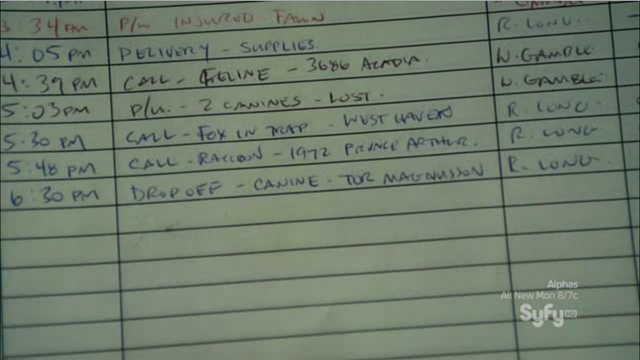 3 34AM P/U INJURED FAWN R. LONG
4:05PM DELIVERY - SUPPLIES W. GAMBLE
4:39PM CALL - FELINE - 3686 ACADIA. W. GAMBLE
5:03PM P/U. - 2 CANINES - LOST. R. LONG
5:30 PM CALL - FOX IN TRAP - WEST HAVEN R. LONG
5:48 PM CALL - RACCOON - 1972 PRINCE ARTHUR. R. LONG
6:30 PM DROP OFF - CANINE - TOR MAGNUSSON R. LONG
Alphas
All New Mon 8/7c
Syfy HD